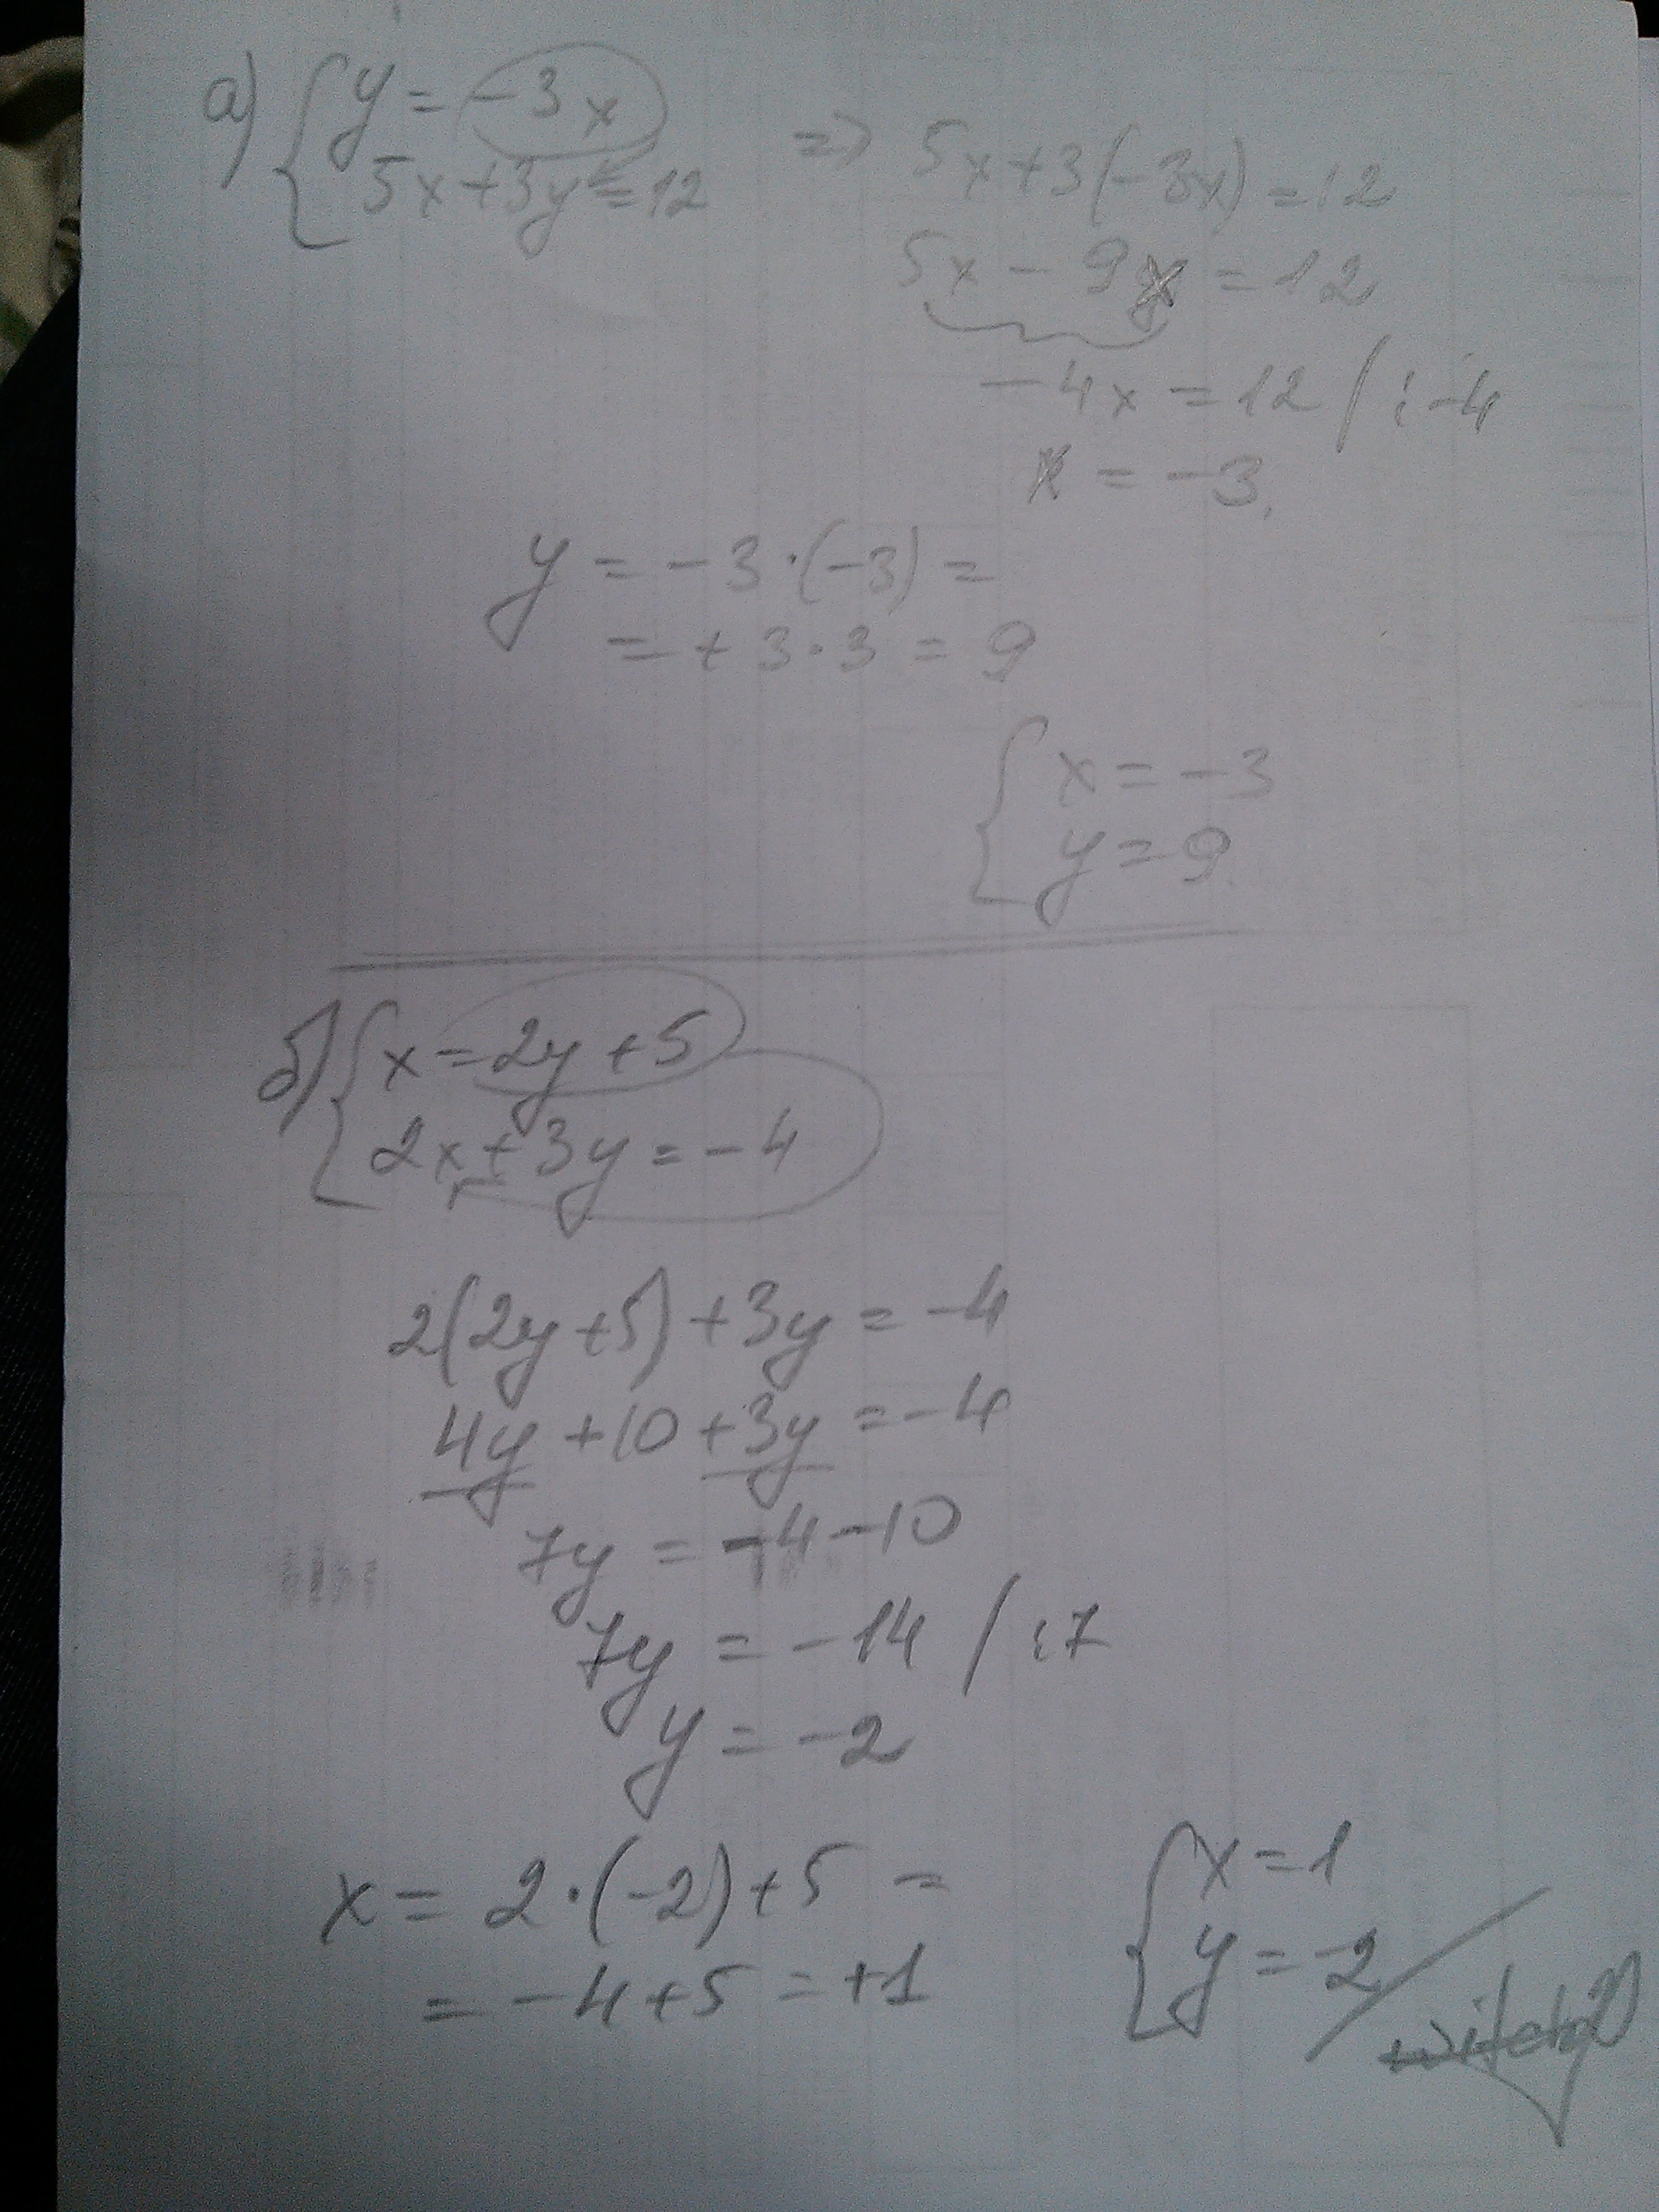 а) { y = -3x
5x+3y=12
=> 5x+3(-3x)=12
5x - 9x = 12
-4x = 12 / : -4
x = -3.
y = -3·(-3) =
= +3·3 = 9
{ x = -3
y = 9.
б) { x = 2y+5
2x+3y=-4
2(2y+5)+3y=-4
4y+10+3y=-4
7y = -4-10
7y = -14 / :7
y = -2
x = 2·(-2)+5 =
= -4+5 = +1
{ x=1
y=-2